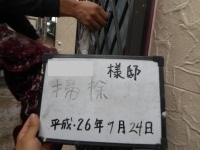 様邸
掃除
平成・26年7月24日